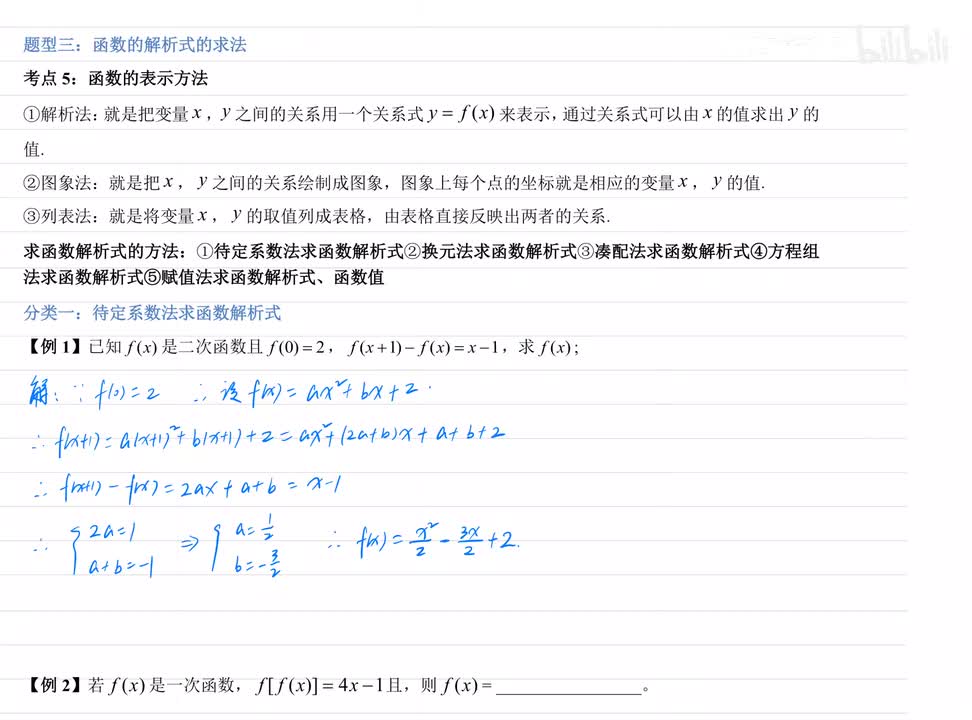 bilibili
题型三：函数的解析式的求法
考点 5：函数的表示方法
①解析法：就是把变量 x，y 之间的关系用一个关系式 y = f(x) 来表示，通过关系式可以由 x 的值求出 y 的
值.
②图象法：就是把 x，y 之间的关系绘制成图象，图象上每个点的坐标就是相应的变量 x，y 的值.
③列表法：就是将变量 x，y 的取值列成表格，由表格直接反映出两者的关系.
求函数解析式的方法：①待定系数法求函数解析式②换元法求函数解析式③凑配法求函数解析式④方程组
法求函数解析式⑤赋值法求函数解析式、函数值
分类一：待定系数法求函数解析式
【例 1】已知 f(x) 是二次函数且 f(0) = 2，f(x+1) − f(x) = x − 1，求 f(x)；
解：∵ f(0) = 2 ∴ 设 f(x) = ax² + bx + 2.
∴ f(x+1) = a(x+1)² + b(x+1) + 2 = ax² + (2a+b)x + a + b + 2
∴ f(x+1) − f(x) = 2ax + a + b = x − 1
∴ { 2a = 1 a + b = −1 ⇒ { a = 1/2 b = −3/2 ∴ f(x) = x²/2 − 3x/2 + 2.
【例 2】若 f(x) 是一次函数，f[f(x)] = 4x − 1 且，则 f(x) = ________________。